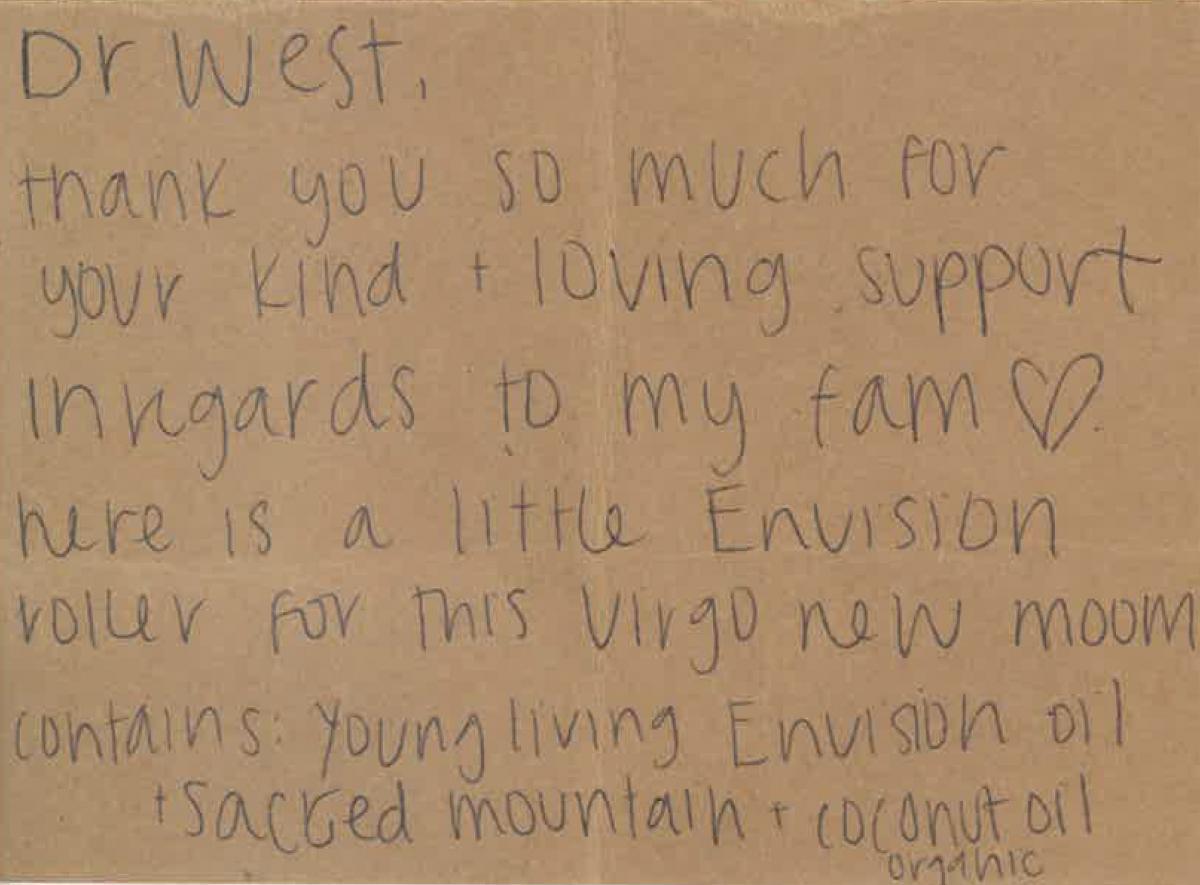 Dr West,
thank you so much for
your kind + loving support
inregards to my fam ♡
here is a little Envision
roller for this Virgo new moom
contains: Young living Envision oil
+ Sacred mountain + coconut oil
organic